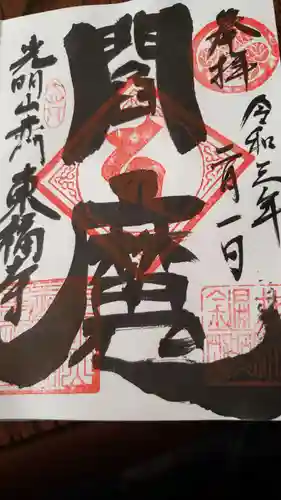 奉拝
令和三年
二月一日
閻魔
光明山 東福寺